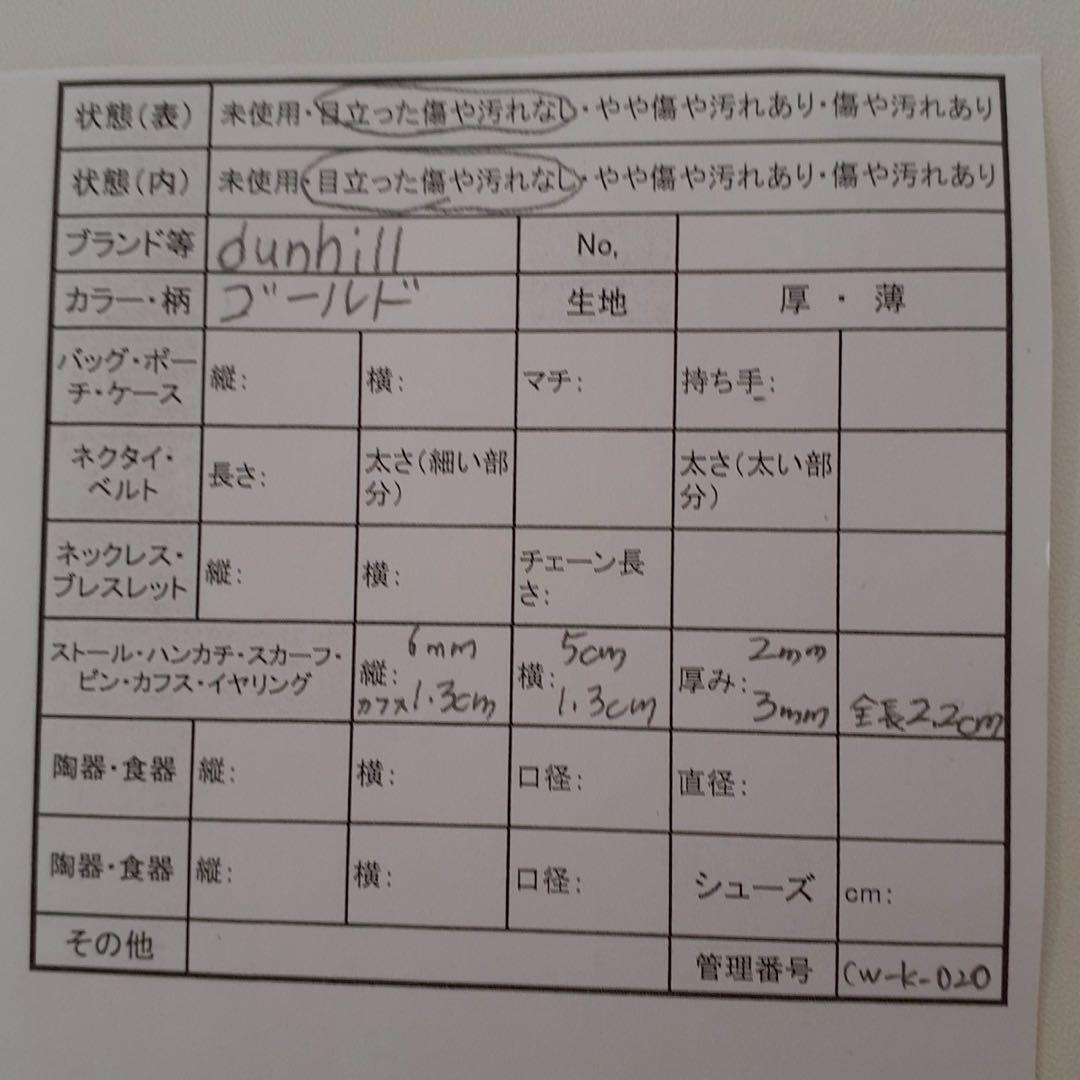 状態(表) 未使用・目立った傷や汚れなし・やや傷や汚れあり・傷や汚れあり
状態(内) 未使用・目立った傷や汚れなし・やや傷や汚れあり・傷や汚れあり
ブランド等 dunhill No,
カラー・柄 ゴールド 生地 厚・薄
バッグ・ポー
チ・ケース 縦: 横: マチ: 持ち手:
ネクタイ・
ベルト 長さ: 太さ(細い部
分) 太さ(太い部
分)
ネックレス・
ブレスレット 縦: 横: チェーン長
さ:
ストール・ハンカチ・スカーフ・
ピン・カフス・イヤリング
縦: 6mm 横: 5cm 厚み: 2mm
カフス1.3cm 1.3cm 3mm 全長2.2cm
陶器・食器 縦: 横: 口径: 直径:
陶器・食器 縦: 横: 口径: シューズ cm:
その他 管理番号 CW-K-020